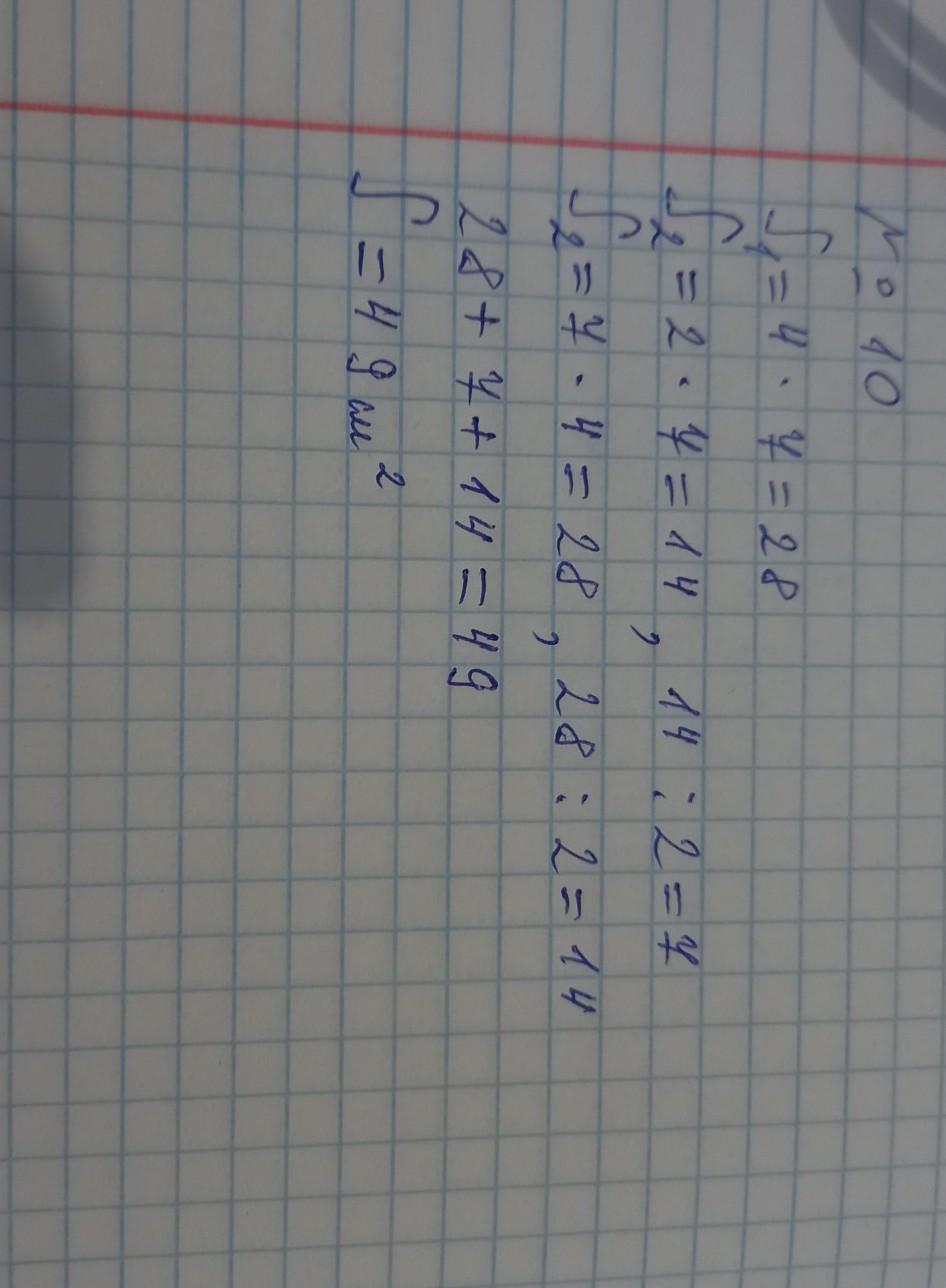 № 10
S₁ = 4 · 7 = 28
S₂ = 2 · 7 = 14, 14 : 2 = 7
S₂ = 7 · 4 = 28, 28 : 2 = 14
28 + 7 + 14 = 49
S = 49 см²